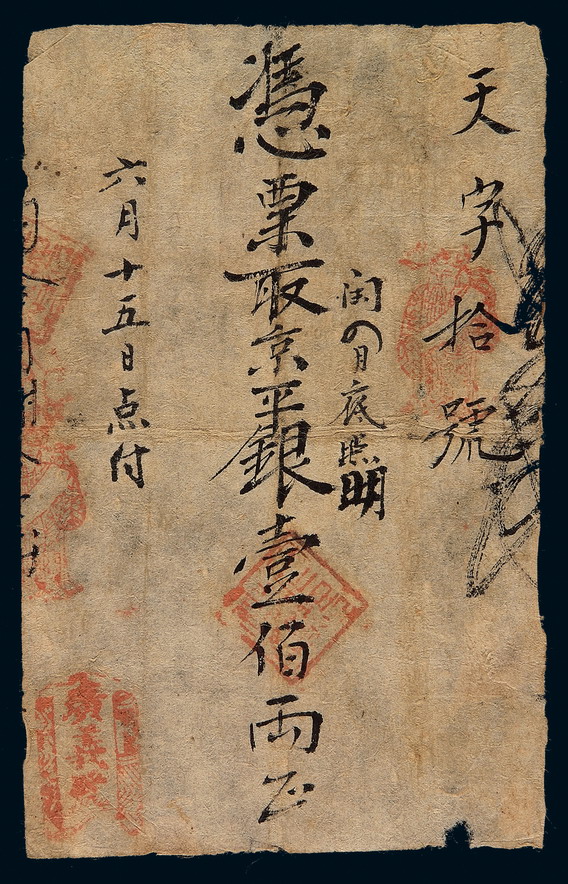 天字拾號
闰四月底照明
憑票取京平銀壹佰兩正
六月十五日点付
廣義